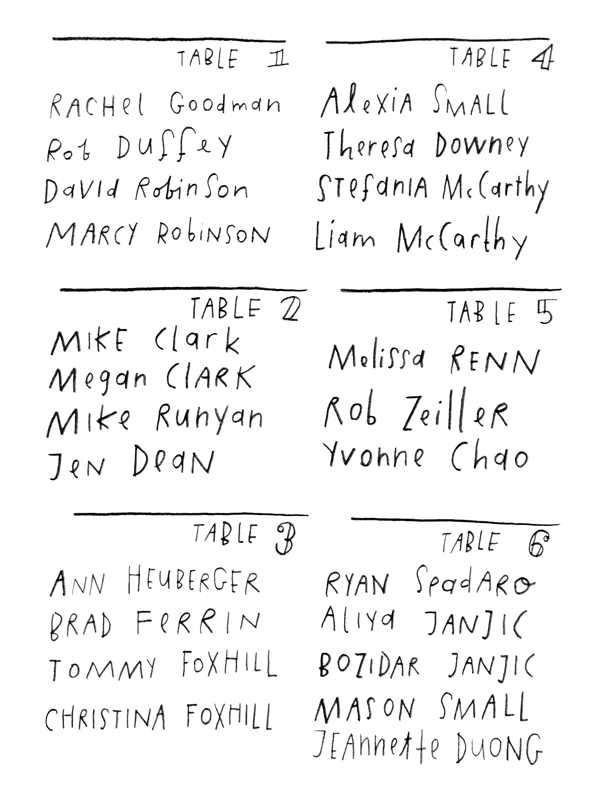 TABLE 1
RACHEl Goodman
Rob DUffey
DaVId RobinSon
MARCY RobiNSON
TABLE 2
MIKE Clark
Megan ClARK
Mike Runyan
Jen DeaN
TABLE 3
ANN HEUBERGER
BRAD FeRRIN
TOMMY FOXHILL
CHRISTINA FOXHILL
TABLE 4
AleXiA SMALL
Theresa Downey
STefanIA McCarthy
Liam McCarthy
TABLE 5
Melissa RENN
Rob ZeilleR
Yvonne Chao
TABLE 6
RYAN SpadARo
Aliya JANJIC
BOZIDAR JANJIC
MASON SMALL
JEAnnette DUONG